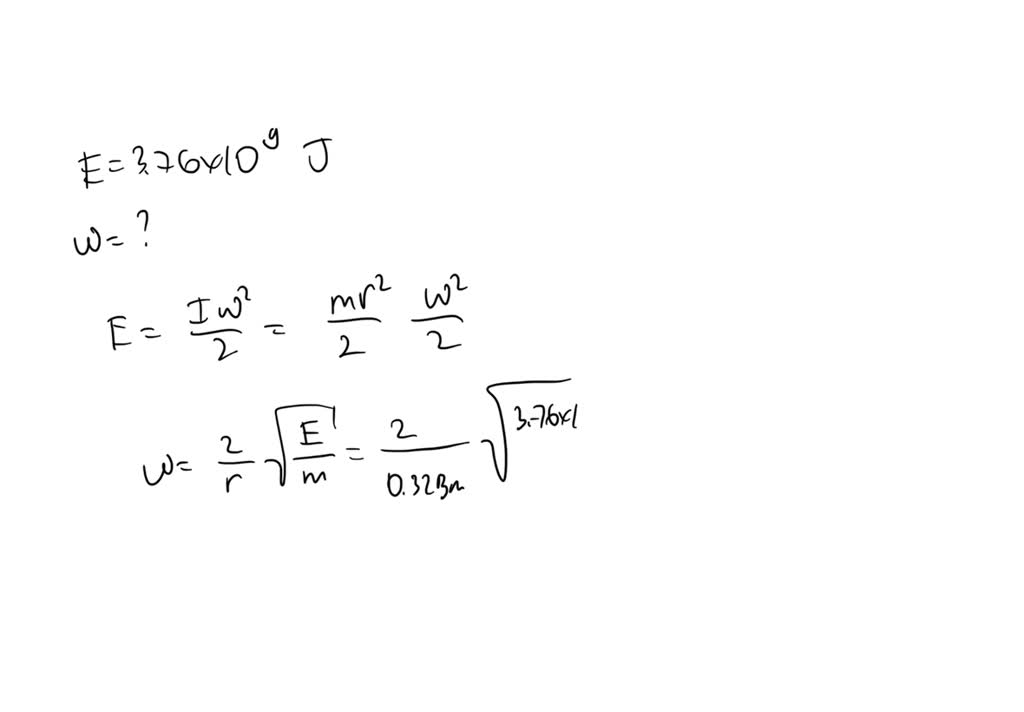 E = 3.76x10^9 J
ω = ?
E = Iω²/2 = mr²/2 ω²/2
ω = 2/r √(E/m) = 2/0.323m √3.76x1